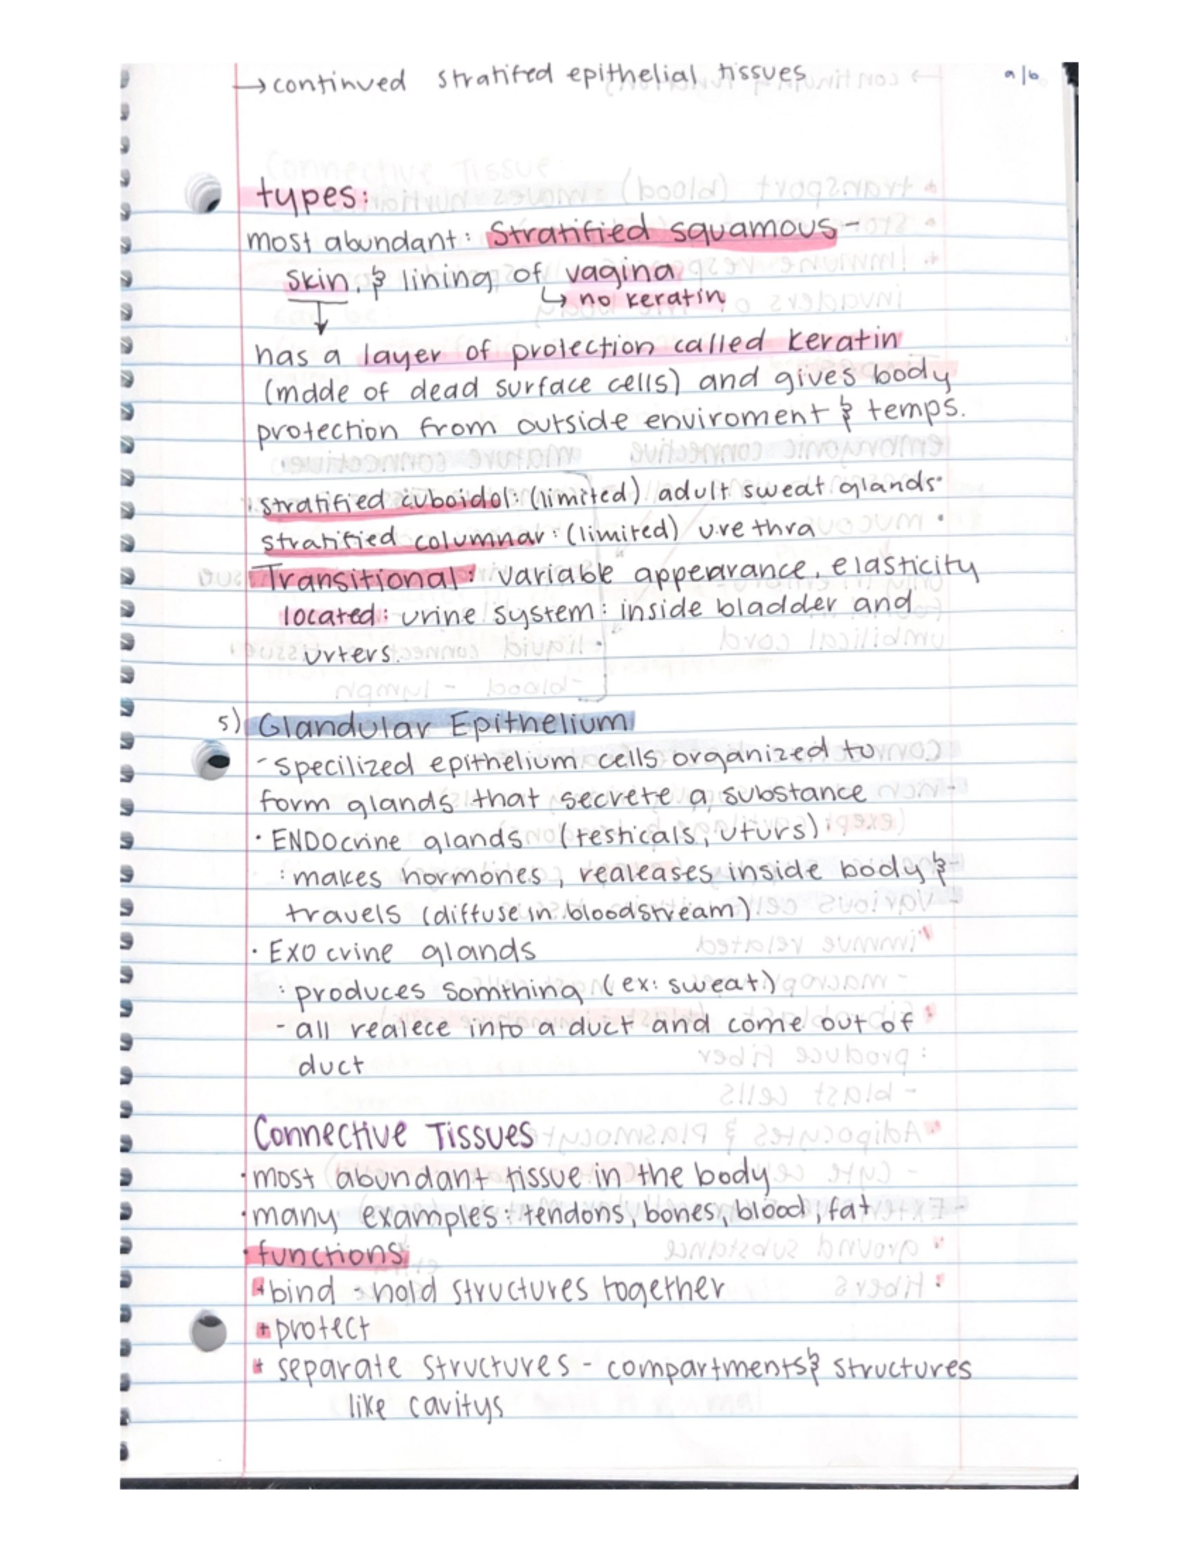 → continued stratifed epithelial tissues
9/6
types:
most abundant: Stratified squamous -
skin, & lining of vagina
↳ no keratin
has a layer of protection called keratin
(made of dead surface cells) and gives body
protection from outside enviroment & temps.
stratified cuboidol: (limited) adult sweat glands
stratified columnar: (limited) urethra
Transitional: variable appearance, elasticity
located: urine system: inside bladder and
urters.
5) Glandular Epithelium
- specilized epithelium cells organized to
form glands that secrete a substance
• ENDOcrine glands (testicals, uturs)
: makes hormones, realeases inside body &
travels (diffuse in bloodstream)
• EXO crine glands
: produces somthing (ex: sweat)
- all realece into a duct and come out of
duct
Connective Tissues
• most abundant tissue in the body
• many examples: tendons, bones, blood, fat
• functions
+ bind - hold structures together
+ protect
+ separate structures - compartments & structures
like cavitys